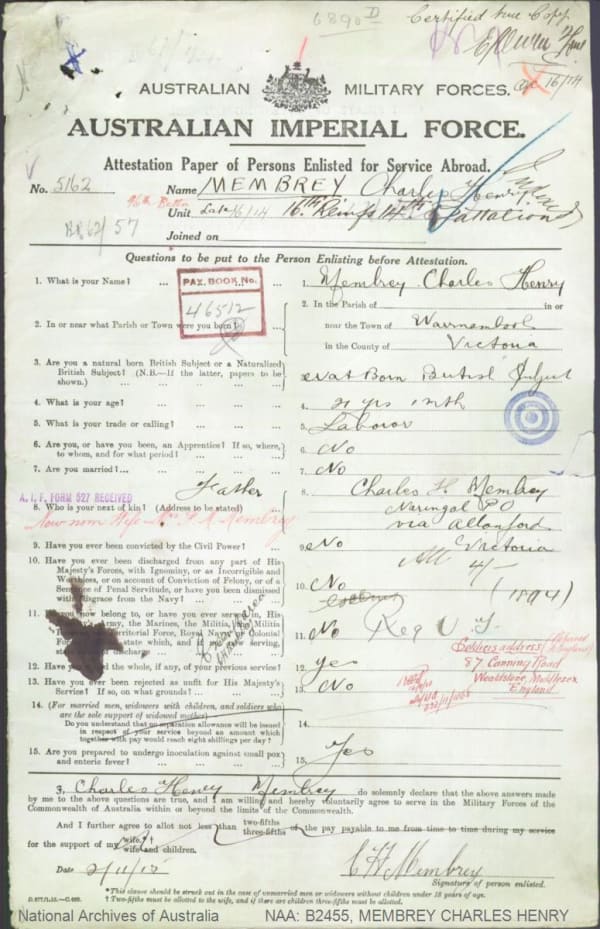 6890 D
Certified true Copy
16/14
AUSTRALIAN MILITARY FORCES.
AUSTRALIAN IMPERIAL FORCE.
Attestation Paper of Persons Enlisted for Service Abroad.
No. 5162 Name MEMBREY Charles Henry
46th Battn Unit Late 16/14 16th Reinfs 14th Battalion
Joined on
Questions to be put to the Person Enlisting before Attestation.
1. What is your Name? ... 1. Membrey Charles Henry
PAX. BOOK No.
46512
2. In or near what Parish or Town were you born? 2. In the Parish of in or
near the Town of Warrnambool
in the County of Victoria
3. Are you a natural born British Subject or a Naturalised
British Subject? (N.B.—If the latter, papers to be
shown.) ... Nat Born British Subject
4. What is your age? ... 4. 21 yrs 1 mth
5. What is your trade or calling? ... 5. Laboror
6. Are you, or have you been, an Apprentice? If so, where,
to whom, and for what period? ... 6. No
7. Are you married? ... 7. No
A.I.F. FORM 527 RECEIVED
Father
8. Who is your next of kin? (Address to be stated) 8. Charles H. Membrey
Naringal PO
via Allansford
Victoria
Now nom Wife Mrs Membrey
9. Have you ever been convicted by the Civil Power? ... 9. No
All 4/-
10. Have you ever been discharged from any part of His
Majesty's Forces, with Ignominy, or as Incorrigible and
Worthless, or on account of Conviction of Felony, or of a
Sentence of Penal Servitude, or have you been dismissed
with disgrace from the Navy? ... 10. No
1894)
11. Do you now belong to, or have you ever served in, His
Army, the Marines, the Militia, the Militia
Territorial Force, Royal Navy Colonial
state which, and if not now serving,
discharge 11. No
Soldiers address
87 Canning Road
Wealdstone, Middlesex
England
12. Have you the whole, if any, of your previous service? 12. Yes
13. Have you ever been rejected as unfit for His Majesty's
Service? If so, on what grounds? ... 13. No
14. (For married men, widowers with children, and soldiers who
are the sole support of widowed mother)
Do you understand that no separation allowance will be issued
in respect of your service beyond an amount which
together with pay would reach eight shillings per day? 14.
15. Are you prepared to undergo inoculation against small pox
and enteric fever? ... 15. Yes
I, Charles Henry Membrey do solemnly declare that the above answers made
by me to the above questions are true, and I am willing and hereby voluntarily agree to serve in the Military Forces of the
Commonwealth of Australia within or beyond the limits of the Commonwealth.
And I further agree to allot not less than two-fifths three-fifths of the pay payable to me from time to time during my service
for the support of my wife.*† wife and children.
Date 2/11/15 C H Membrey
Signature of person enlisted.
*This clause should be struck out in the case of unmarried men or widowers without children under 18 years of age.
† Two-fifths must be allotted to the wife, and if there are children three-fifths must be allotted.
National Archives of Australia NAA: B2455, MEMBREY CHARLES HENRY